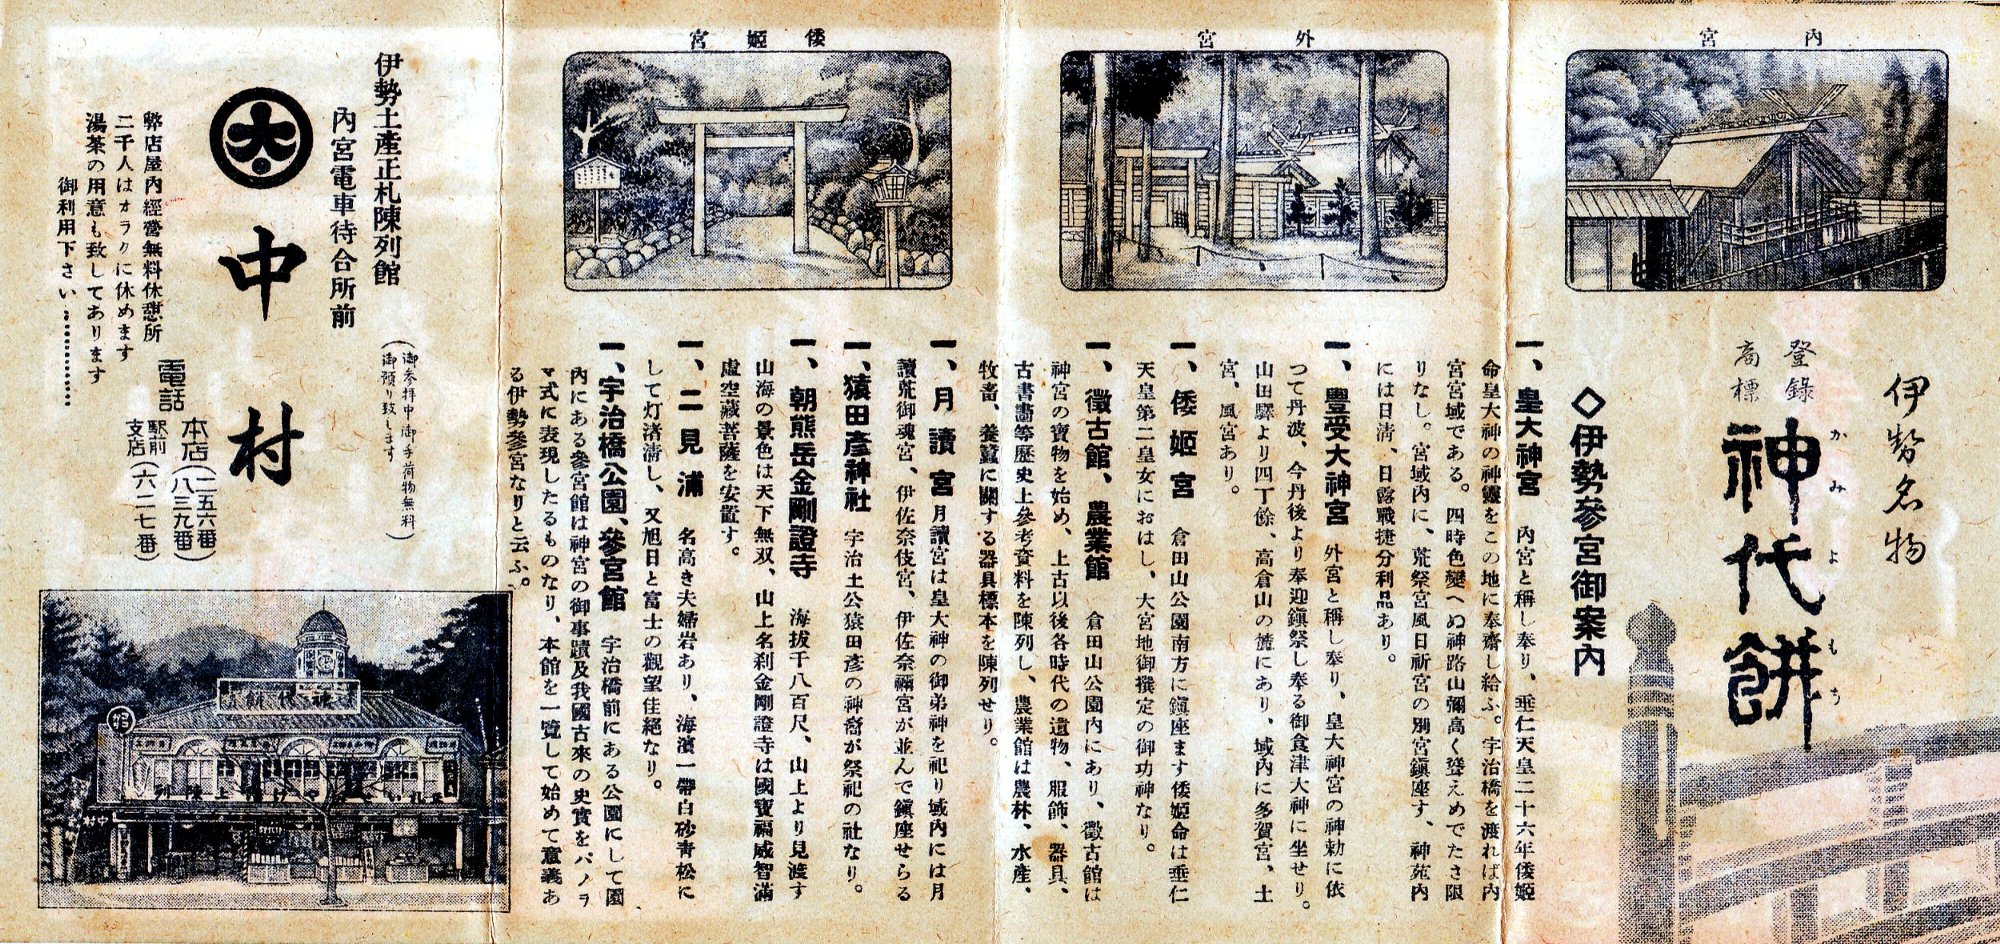 内宮
伊勢名物
登錄
商標
神代餅
かみよもち
◇伊勢參宮御案內
外宮
倭姬宮
一、皇大神宮　內宮と稱し奉り、垂仁天皇二十六年倭姬
命皇大神の神靈をこの地に奉齋し給ふ。宇治橋を渡れば內
宮宮域である。四時色變へぬ神路山彌高く聳えめでたさ限
りなし。宮域內に、荒祭宮風日祈宮の別宮鎭座す、神苑內
には日淸、日露戰捷分利品あり。
一、豐受大神宮　外宮と稱し奉り、皇大神宮の神勅に依
つて丹波、今丹後より奉迎鎭祭し奉る御食津大神に坐せり。
山田驛より四丁餘、高倉山の麓にあり、域內に多賀宮、土
宮、風宮あり。
一、倭姬宮　倉田山公園南方に鎭座ます倭姬命は垂仁
天皇第二皇女におはし、大宮地御撰定の御功神なり。
一、徵古館、農業館　倉田山公園內にあり、徵古館は
神宮の寶物を始め、上古以後各時代の遺物、服飾、器具、
古書畵等歷史上參考資料を陳列し、農業館は農林、水產、
牧畜、養蠶に關する器具標本を陳列せり。
一、月讀宮　月讀宮は皇大神の御弟神を祀り域內には月
讀荒御魂宮、伊佐奈伎宮、伊佐奈彌宮が並んで鎭座せらる
一、猿田彥神社　宇治土公猿田彥の神裔が祭祀の社なり。
一、朝熊岳金剛證寺　海拔千八百尺、山上より見渡す
山海の景色は天下無双、山上名刹金剛證寺は國寶福威智滿
虛空藏菩薩を安置す。
一、二見浦　名高き夫婦岩あり、海濱一帶白砂靑松に
して灯渚淸し、又旭日と富士の觀望佳絕なり。
一、宇治橋公園、參宮館　宇治橋前にある公園にして園
內にある參宮館は神宮の御事蹟及我國古來の史實をパノラ
マ式に表現したるものなり、本館を一覽して始めて意義あ
る伊勢參宮なりと云ふ。
伊勢土產正札陳列館
（御參拜中御手荷物無料
御預り致します）
內宮電車待合所前
大
中村
電話
本店（二五六番）
（八三九番）
驛前
支店（六二七番）
弊店屋內經營無料休憩所
二千人はオラクに休めます
湯茶の用意も致してあります
御利用下さい…………
神代餅
中村